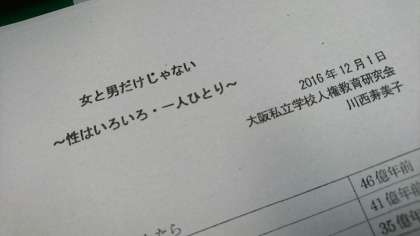 女と男だけじゃない
～性はいろいろ・一人ひとり～
2016年12月1日
大阪私立学校人権教育研究会
川西寿美子
46億年前
41億年前
35億年
たら